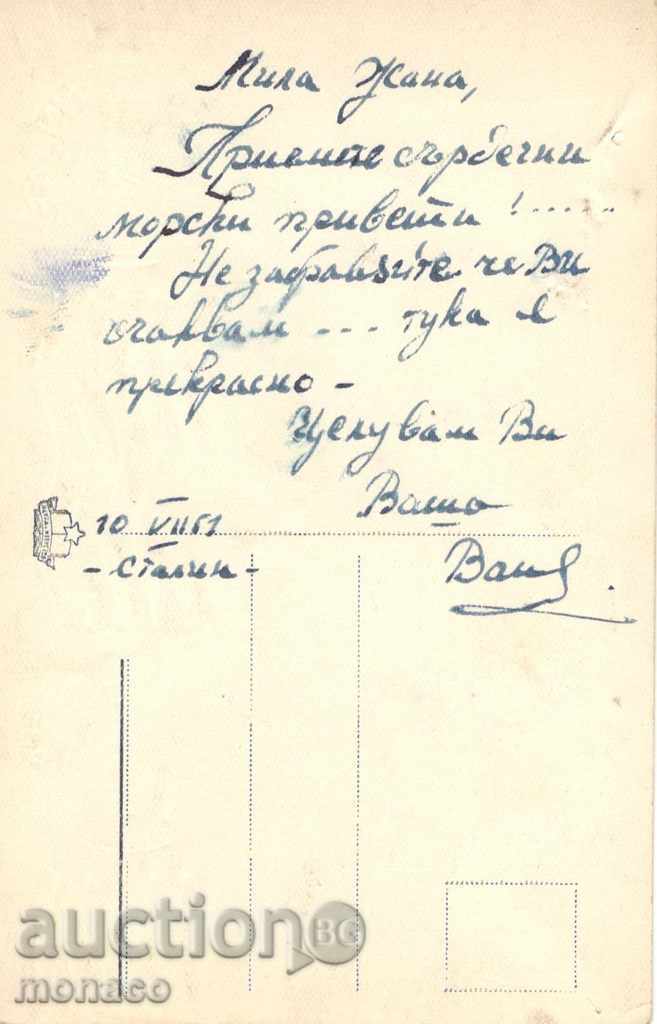 Мила Жана,
Приемите сърдечни
морски привети !.....
Не забравяйте че Ви
очаквам ... тука е
прекрасно -
Целувам Ви
Ваша
Ваня
10 VII 51
- Сталин -
auction BG
monaco